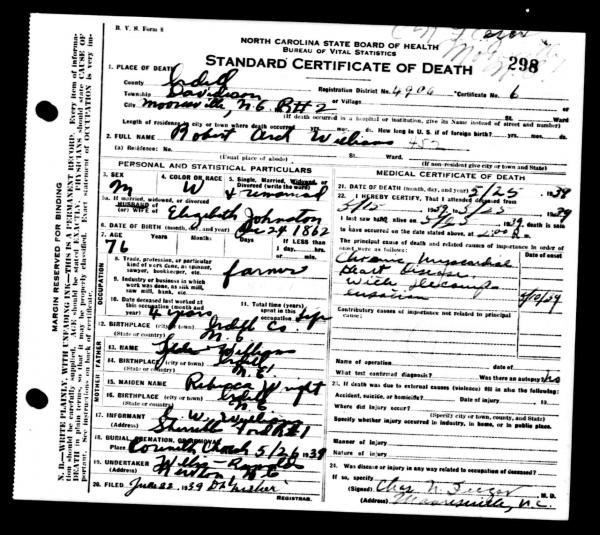 B. V. S. Form 8
NORTH CAROLINA STATE BOARD OF HEALTH
BUREAU OF VITAL STATISTICS
STANDARD CERTIFICATE OF DEATH
298
1. PLACE OF DEATH
County Iredell
Registration District No. 4906 Certificate No. 6
Township Davidson or Village
City Mooresville, N.C. Rt # 2 St. Ward
(If death occurred in a hospital or institution, give its Name instead of street and number)
Length of residence in city or town where death occurred yrs. mos. ds. How long in U. S. if of foreign birth? yrs. mos. ds.
2. FULL NAME Robert Arch Williams 452
(a) Residence: No. St. Ward.
(Usual place of abode) (If non-resident give city or town and State)
PERSONAL AND STATISTICAL PARTICULARS
3. SEX M
4. COLOR OR RACE W
5. Single, Married, Widowed, or Divorced (write the word)
5a. If married, widowed, or divorced
HUSBAND of
(or) WIFE of Elizabeth Johnston
6. DATE OF BIRTH Dec 24 1862
7. AGE Years Months Days If LESS than
76 1 day, hrs.
or min.
8. Trade, profession, or particular kind of work done, as spinner, sawyer, bookkeeper, etc. farmer
9. Industry or business in which work was done, as silk mill, saw mill, bank, etc.
10. Date deceased last worked at this occupation (month and year) 4 years
11. Total time (years) spent in this occupation Life
12. BIRTHPLACE (city or town) Iredell Co.
(State or country) N. C.
13. NAME Williams
14. BIRTHPLACE (city or town) Iredell
(State or country) N. C.
15. MAIDEN NAME Rebecca Wright
16. BIRTHPLACE (city or town) Iredell
(State or country) N C
17. INFORMANT W. Williams
(Address) Sherrills Ford Rt 1
18. BURIAL, CREMATION, OR REMOVAL
Place Corinth Church 5/26 1939
19. UNDERTAKER
(Address) Newton N C
20. FILED June 22 1939
REGISTRAR.
MEDICAL CERTIFICATE OF DEATH
21. DATE OF DEATH (month, day, and year) 5/25 1939
22. I HEREBY CERTIFY, That I attended deceased from
5/15 1939, to 5/25 1939
I last saw h alive on 5/25 1939, death is said
to have occurred on the date stated above, at 2:00 m.
The principal cause of death and related causes of importance in order of onset were as follows: Date of onset
Chronic Myocardial
Heart Disease
With Decompensation 5/10/39
Contributory causes of importance not related to principal cause:
Name of operation date of
What test confirmed diagnosis? Was there an autopsy? no
23. If death was due to external causes (violence) fill in also the following:
Accident, suicide, or homicide? Date of injury 19
Where did injury occur?
(Specify city or town, county, and State)
Specify whether injury occurred in industry, in home, or in public place.
Manner of Injury
Nature of injury
24. Was disease or injury in any way related to occupation of deceased?
If so, specify
(Signed) Chas. N. M. D.
(Address) Mooresville, N.C.
MARGIN RESERVED FOR BINDING
N. B.—WRITE PLAINLY, WITH UNFADING INK—THIS IS A PERMANENT RECORD. Every item of information should be carefully supplied. AGE should be stated EXACTLY. PHYSICIANS should state CAUSE OF DEATH in plain terms, so that it may be properly classified. Exact statement of OCCUPATION is very important. See instructions on back of certificate.
OCCUPATION
FATHER
MOTHER